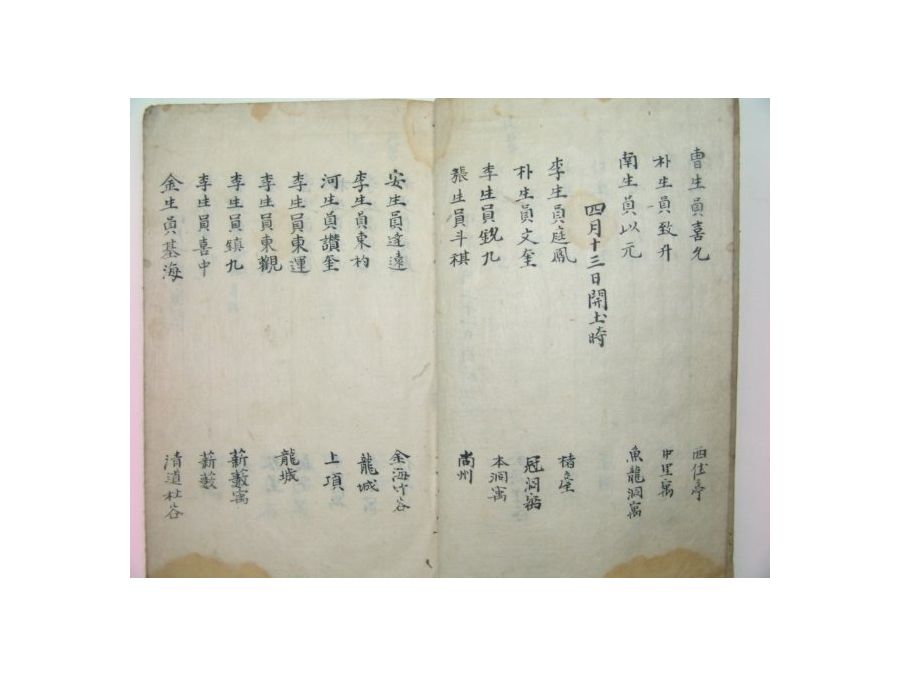 曺生員喜九 西仕亭
朴生員致升 中里寓
南生員以元 魚龍洞寓
四月十三日開土時
李生員庭鳳 楮
朴生員文奎 冠洞寓
李生員銳九 本洞寓
張生員斗祺 尚州
安生員遠 金海竹谷
李生員東杓 龍城
河生員讚奎 上項
李生員東運 龍城
李生員東觀
李生員鎮九 薪藪寓
李生員喜中 薪藪
金生員基海 清道杜谷